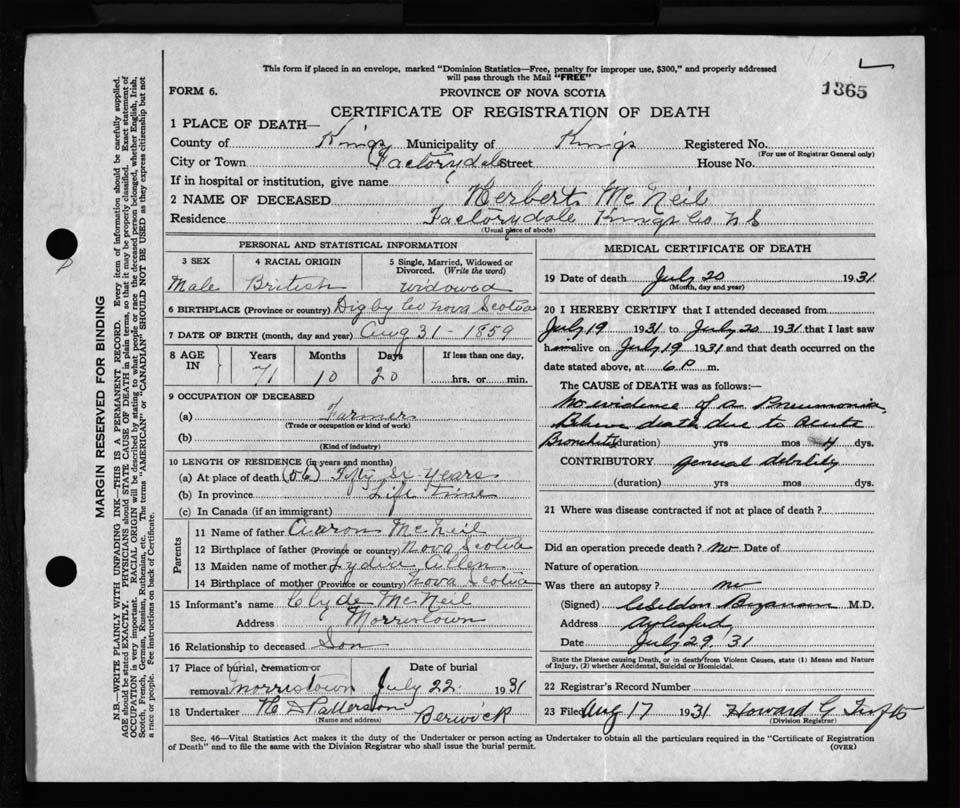 This form if placed in an envelope, marked "Dominion Statistics—Free, penalty for improper use, $300," and properly addressed
will pass through the Mail "FREE"
FORM 6.
PROVINCE OF NOVA SCOTIA
1365
CERTIFICATE OF REGISTRATION OF DEATH
1 PLACE OF DEATH—
County of Kings Municipality of Kings Registered No.
(For use of Registrar General only)
City or Town Factorydale Street House No.
If in hospital or institution, give name
2 NAME OF DECEASED Herbert McNeil
Residence Factorydale Kings Co N S
(Usual place of abode)
PERSONAL AND STATISTICAL INFORMATION
3 SEX 4 RACIAL ORIGIN 5 Single, Married, Widowed or Divorced. (Write the word)
Male British widowed
6 BIRTHPLACE (Province or country) Digby Co Nova Scotia
7 DATE OF BIRTH (month, day and year) Aug 31 - 1859
8 AGE IN Years Months Days If less than one day,
71 10 20 hrs. or min.
9 OCCUPATION OF DECEASED
(a) Farmer
(Trade or occupation or kind of work)
(b)
(Kind of industry)
10 LENGTH OF RESIDENCE (in years and months)
(a) At place of death (56) Fifty Six years
(b) In province Life time
(c) In Canada (if an immigrant)
Parents
11 Name of father Aaron McNeil
12 Birthplace of father (Province or country) Nova Scotia
13 Maiden name of mother Lydia Allen
14 Birthplace of mother (Province or country) Nova Scotia
15 Informant's name Clyde McNeil
Address Morristown
16 Relationship to deceased Son
17 Place of burial, cremation or Date of burial
removal Morristown July 22 1931
18 Undertaker The D Patterson Berwick
(Name and address)
MEDICAL CERTIFICATE OF DEATH
19 Date of death July 20 1931
(Month, day and year)
20 I HEREBY CERTIFY that I attended deceased from
July 19 1931 to July 20 1931 that I last saw
h alive on July 19 1931 and that death occurred on the
date stated above, at 6 P m.
The CAUSE of DEATH was as follows:—
No evidence of a Pneumonia
believe death due to acute
Bronchitis (duration) yrs mos 4 dys.
CONTRIBUTORY general debility
(duration) yrs. mos. dys.
21 Where was disease contracted if not at place of death?
Did an operation precede death? no Date of
Nature of operation
Was there an autopsy? no
(Signed) M.D.
Address Aylesford
Date July 29, 31
State the Disease causing Death, or in death from Violent Causes, state (1) Means and Nature
of Injury, (2) whether Accidental, Suicidal or Homicidal.
22 Registrar's Record Number
23 Filed Aug 17 1931 Howard G
(Division Registrar)
Sec. 46—Vital Statistics Act makes it the duty of the Undertaker or person acting as Undertaker to obtain all the particulars required in the "Certificate of Registration
of Death" and to file the same with the Division Registrar who shall issue the burial permit.
(OVER)
MARGIN RESERVED FOR BINDING
N.B.—WRITE PLAINLY WITH UNFADING INK—THIS IS A PERMANENT RECORD. Every item of information should be carefully supplied.
AGE should be stated EXACTLY. PHYSICIANS should STATE CAUSE OF DEATH in plain terms, so that it may be properly classified. Exact statement of
OCCUPATION is very important. RACIAL ORIGIN will be described by stating to what people or race the deceased person belonged, whether English, Irish,
Scotch, French, German, Russian, Ruthenian, etc. The terms "AMERICAN" or "CANADIAN" SHOULD NOT BE USED as they express citizenship but not
a race or people. See instructions on back of Certificate.